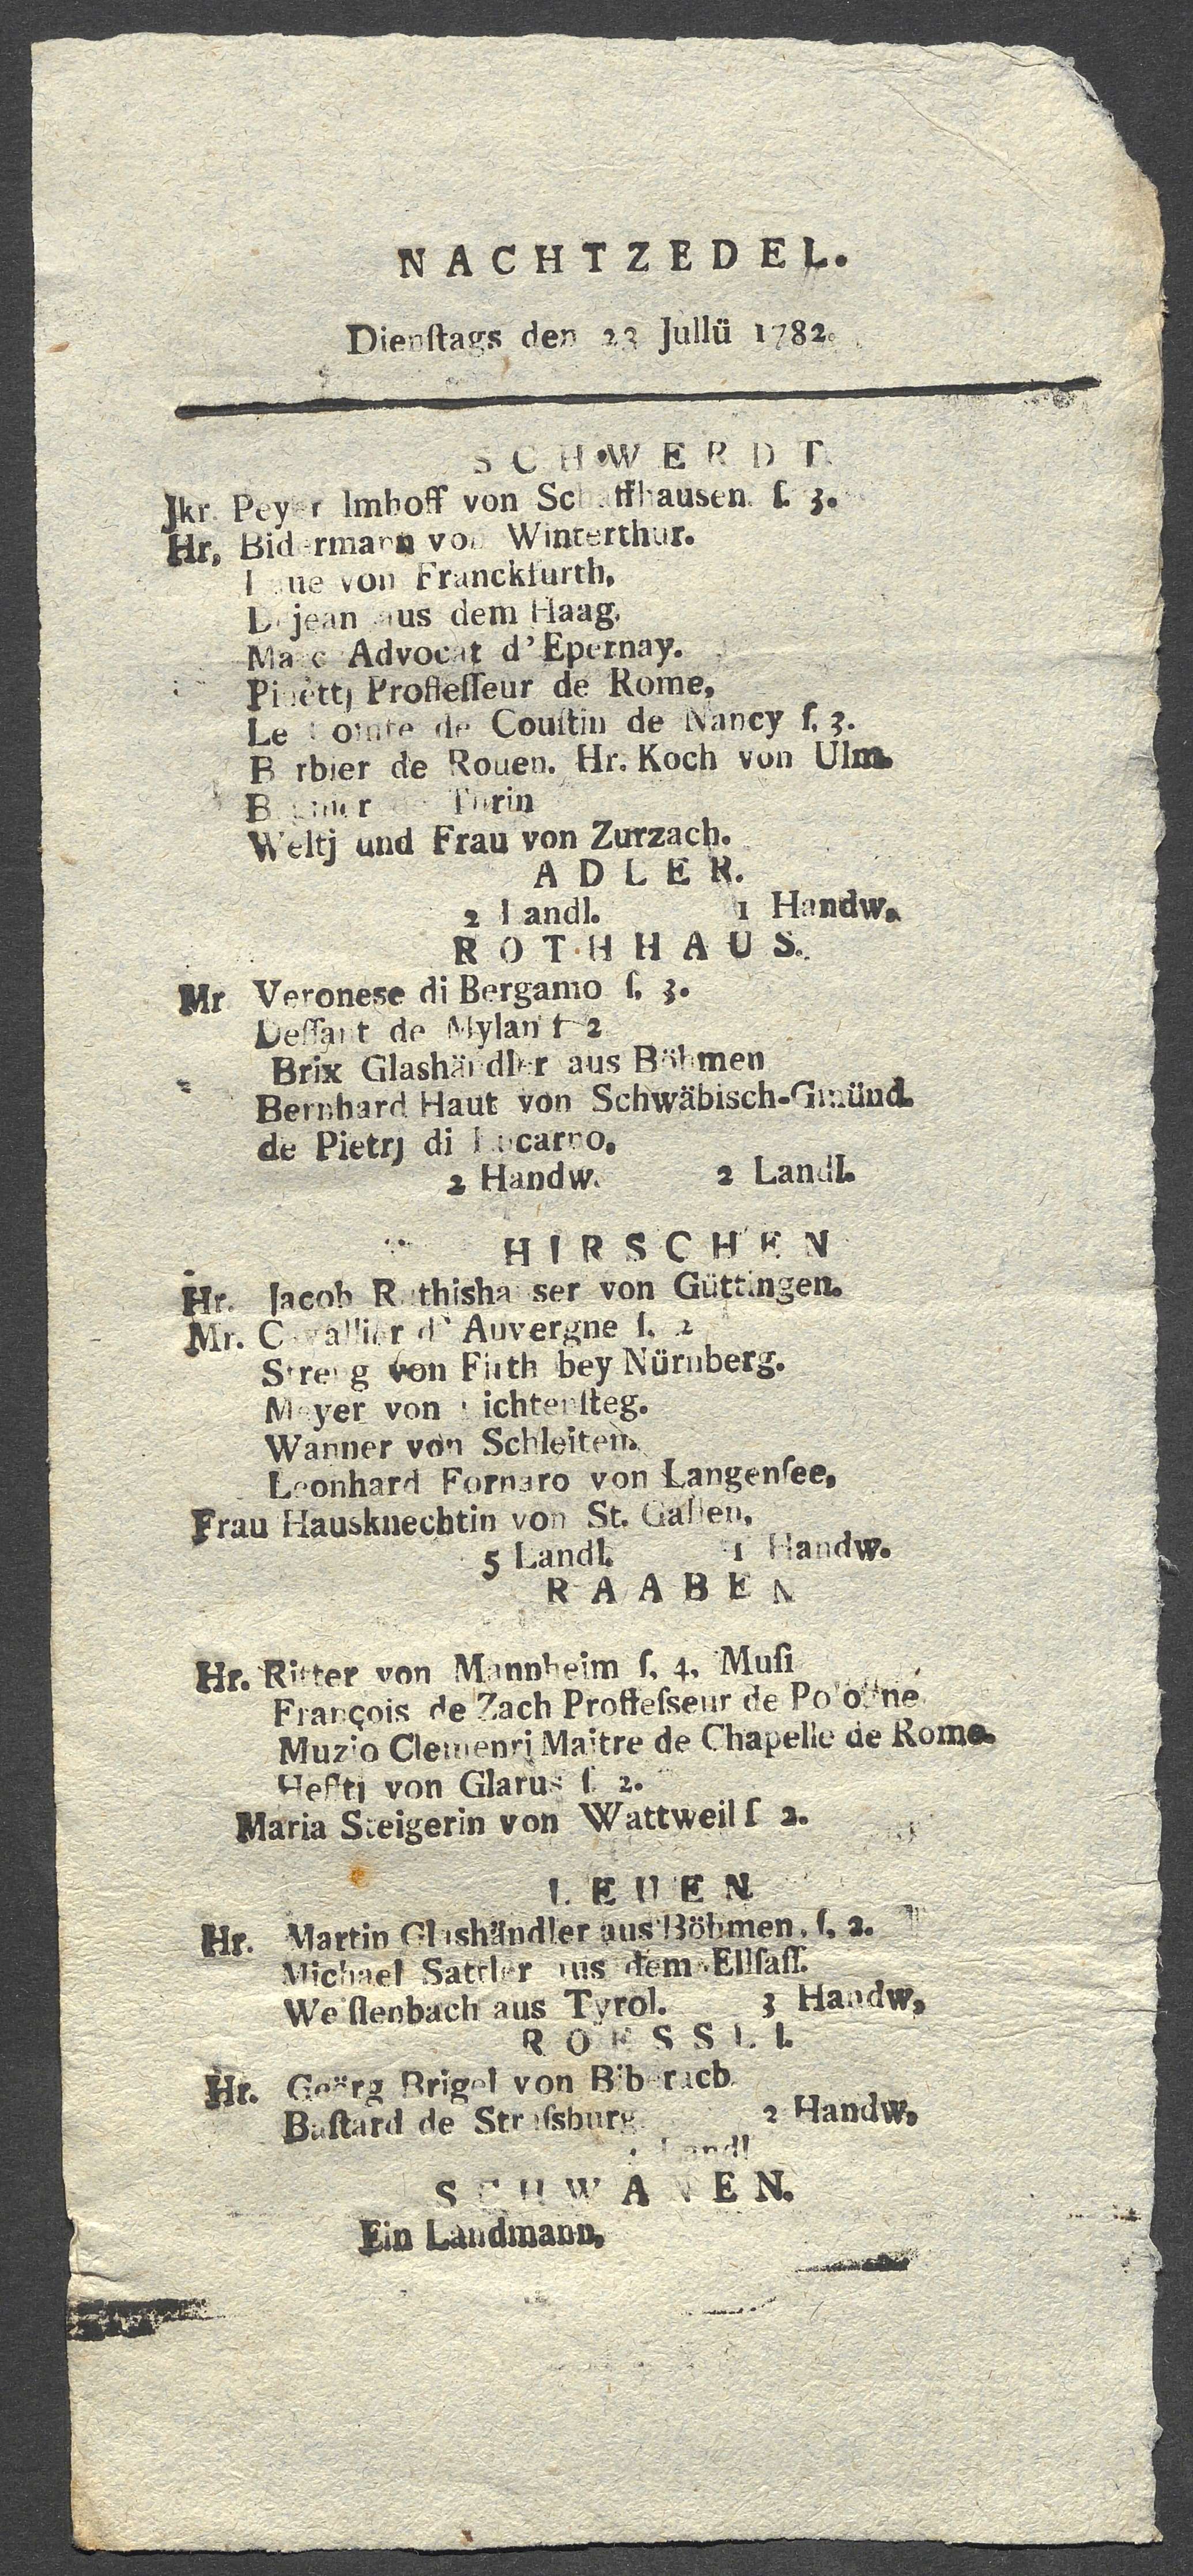 NACHTZEDEL.
Dienſtags den 23 Jullü 1782.
SCHWERDT.
Jkr. Peyer Imhoff von Schaffhausen. ſ. 3.
Hr, Bidermann von Winterthur.
von Franckfurth,
Dejean aus dem Haag.
Marc Advocat d'Epernay.
Pinettj Profieſſeur de Rome,
Le Comte de Couſtin de Nancy ſ. 3.
Barbier de Rouen. Hr. Koch von Ulm.
Turin
Weltj und Frau von Zurzach.
ADLER.
2 Landl. 1 Handw.
ROTHHAUS.
Mr Veronese di Bergamo ſ. 3.
Deſſant de Mylan ſ 2
Brix Glashändler aus Böhmen
Bernhard Haut von Schwäbisch-Gmünd.
de Pietrj di Locarno,
2 Handw. 2 Landl.
HIRSCHEN
Hr. Jacob Rothishauser von Güttingen.
Mr. Cavallier d'Auvergne ſ. 2
Streng von Firth bey Nürnberg.
Meyer von Lichtenſteg.
Wanner von Schleiten.
Leonhard Fornaro von Langenſee,
Frau Hausknechtin von St. Gallen,
5 Landl. 1 Handw.
RAABEN
Hr. Ritter von Mannheim ſ. 4. Muſi
François de Zach Proffeſseur de Pologne
Muzio Clemenrj Maitre de Chapelle de Rome.
Heſſtj von Glarus ſ. 2.
Maria Steigerin von Wattweil ſ 2.
LEUEN
Hr. Martin Glashändler aus Böhmen. ſ. 2.
Michael Sattler aus dem Ellſaſſ.
Weiſſenbach aus Tyrol. 3 Handw,
ROESSLI.
Hr. Geörg Brigel von Biberach
Baſtard de Straſsburg. 2 Handw,
Landl
SCHWANEN.
Ein Landmann,